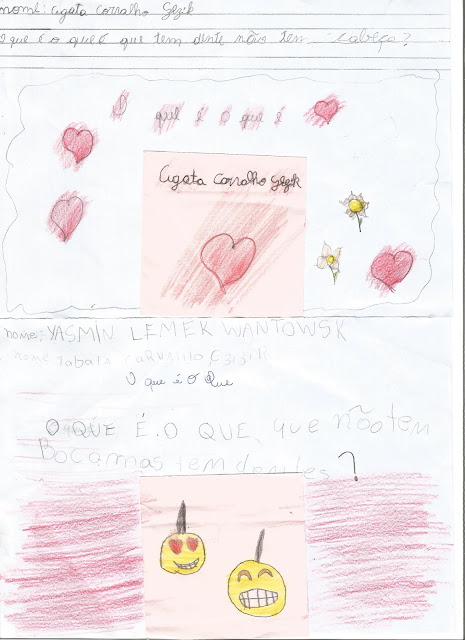 nome: Agata Corralho Gezik
O que é o que é que tem dente não tem cabeça?
O que é o que é
Agata Corralho Gezik
nome: YASMIN LEMEK WANTOWSK
nome
O que é o Que
O QUE É.O QUE, que não tem
Bocamas tem dentes?